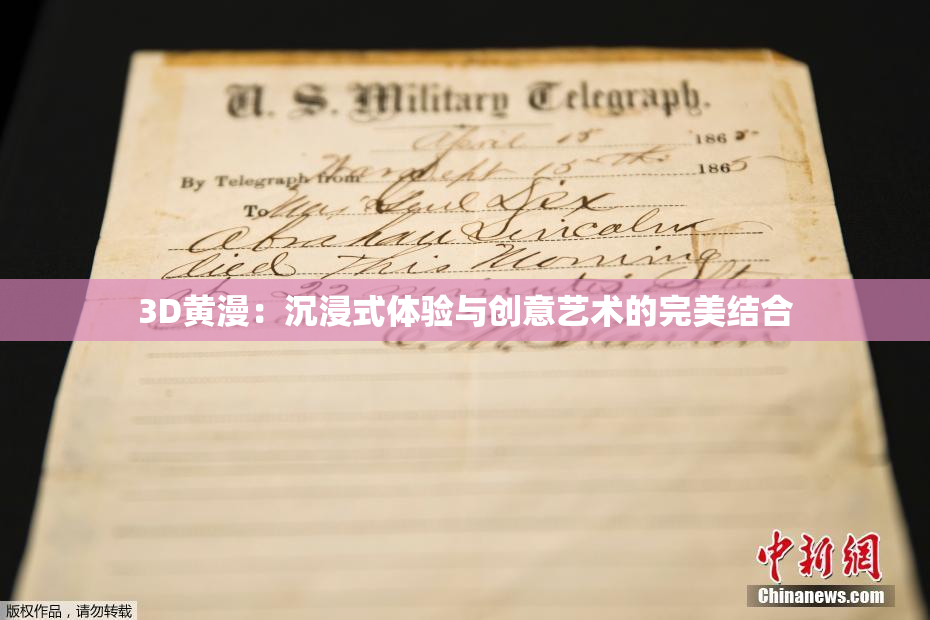 U. S. Military Telegraph.
April 15 1865
By Telegraph from War Dept 15th 1865
To Maj Genl Dix
Abraham Lincoln
died this Morning
at 22 minutes after
3D黄漫：沉浸式体验与创意艺术的完美结合
E. M. Stanton
中新网
Chinanews.com
版权作品，请勿转载